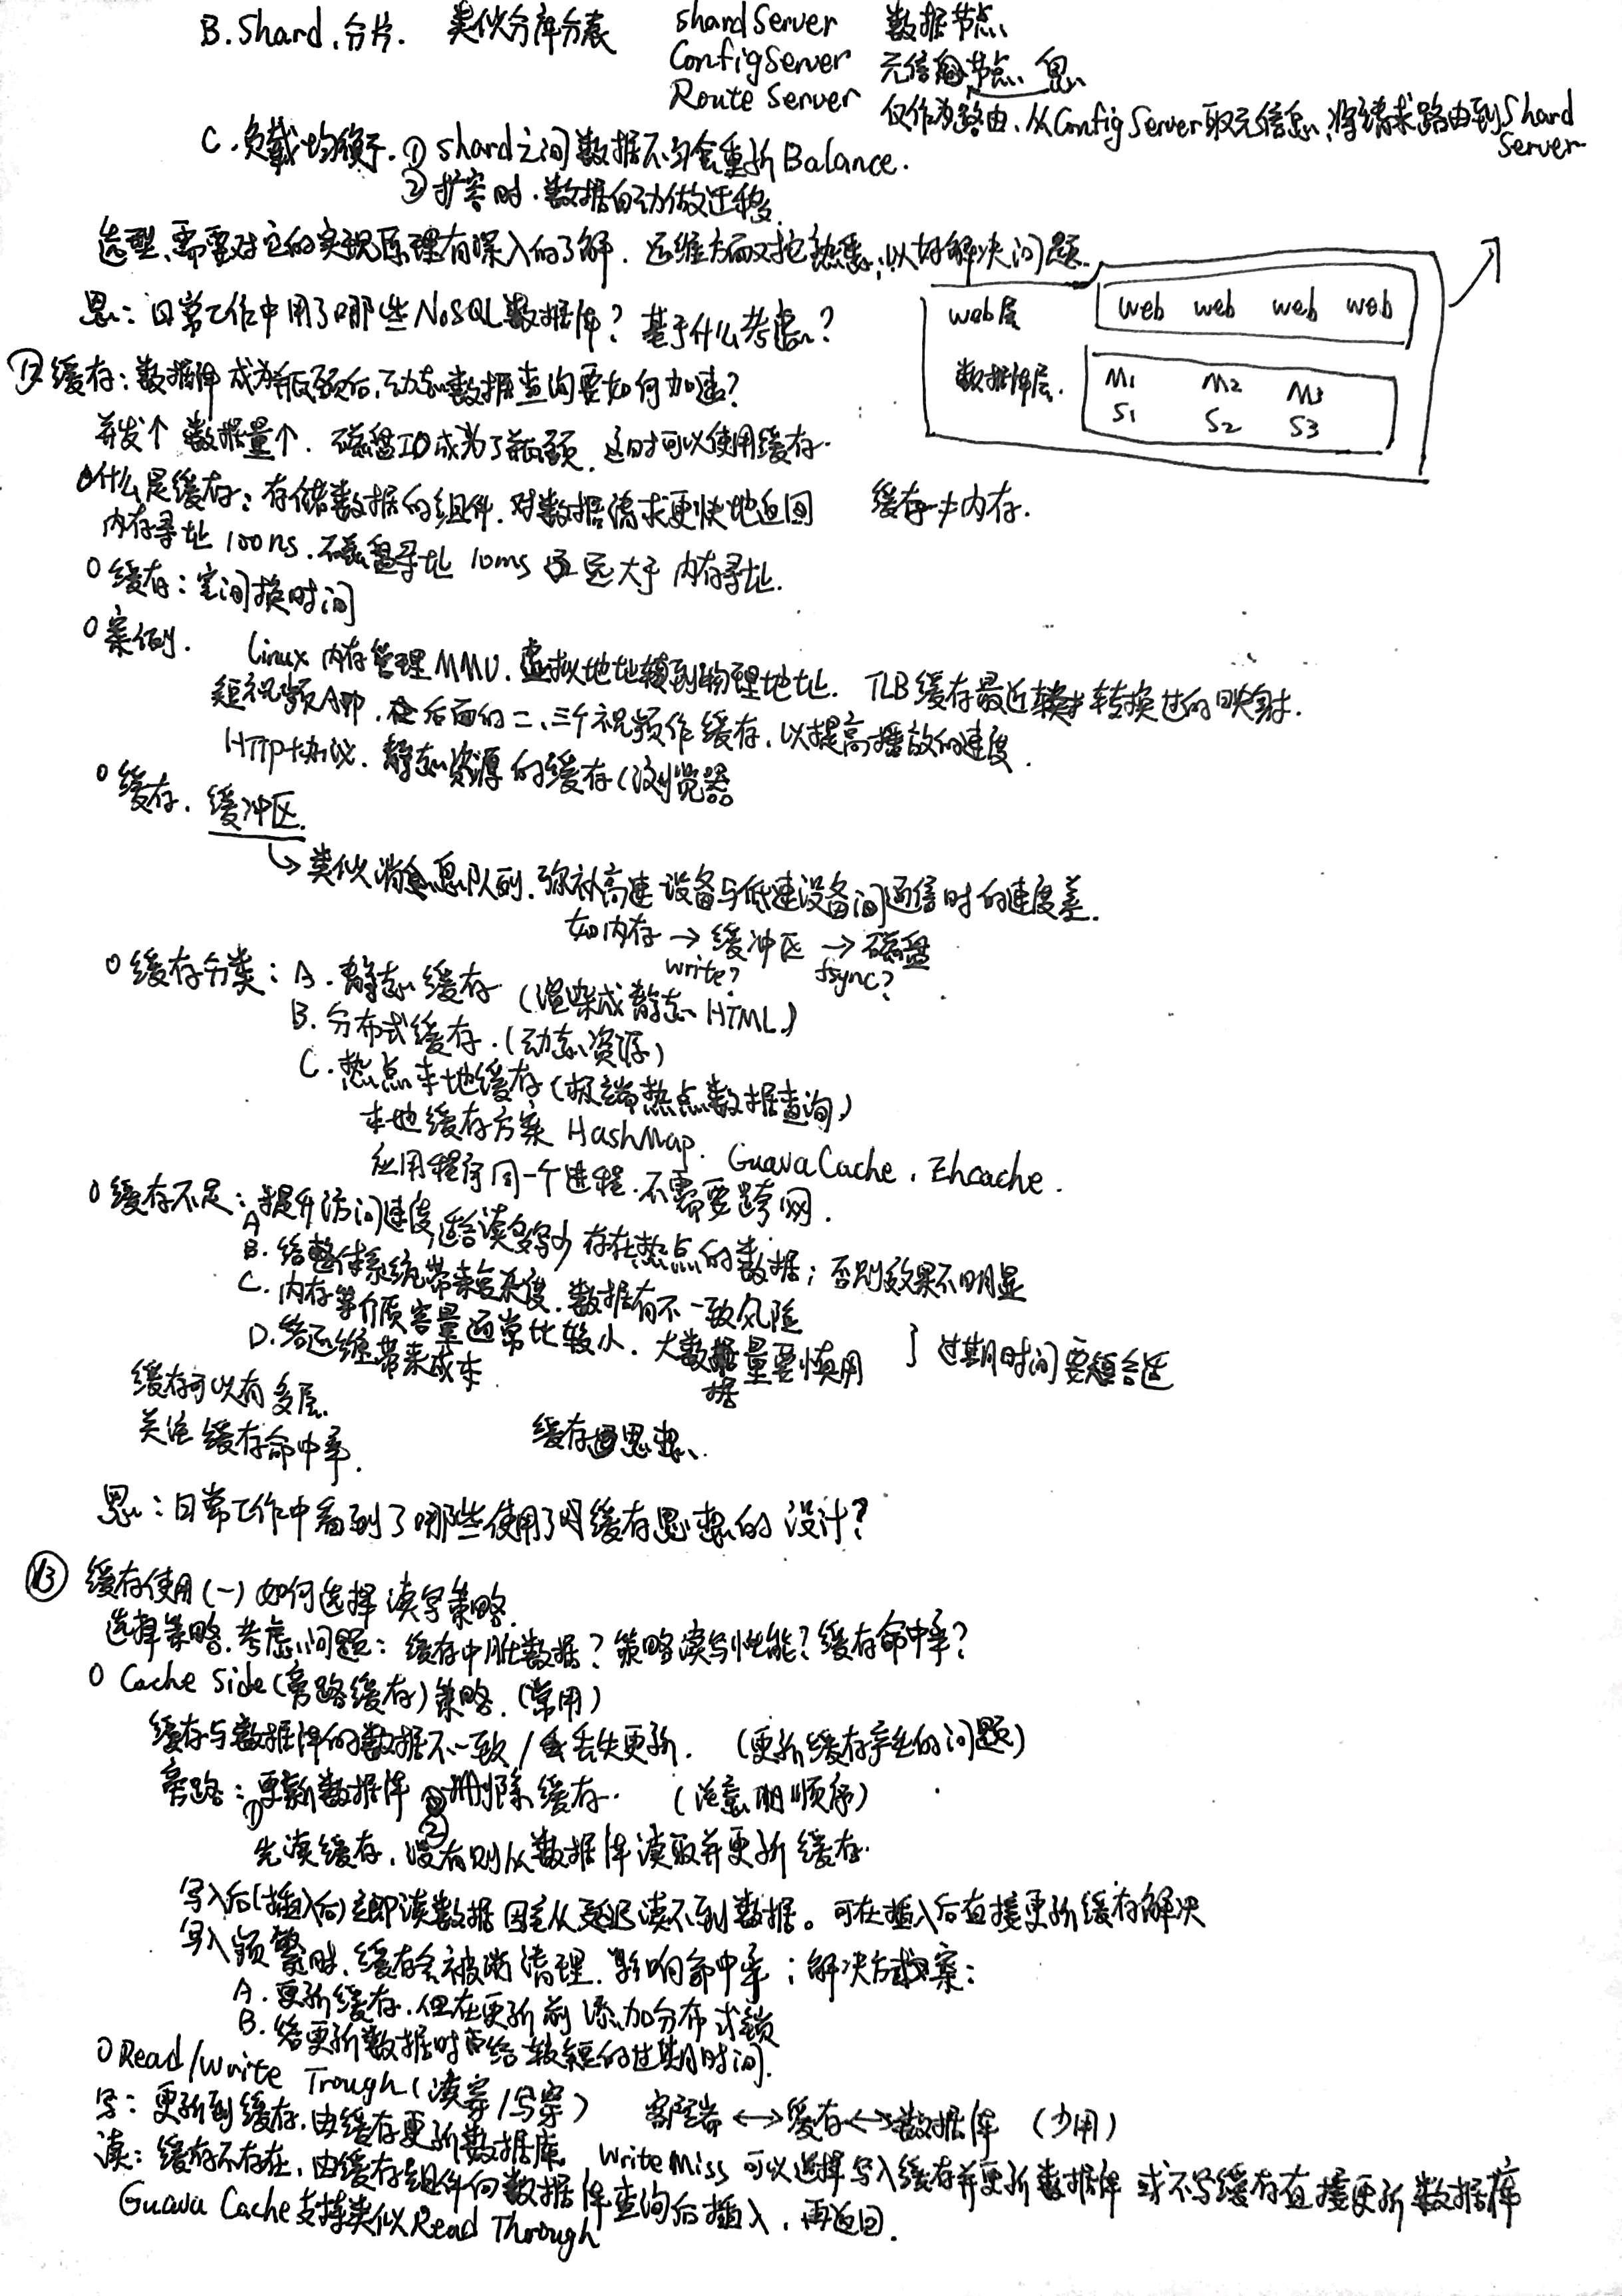 B. Shard、分片. 类似分库分表 shardServer 数据节点
ConfigServer 元信息节点
Route Server 仅作为路由、从Config Server取元信息,将请求路由到Shard Server
C. 负载均衡. ① shard之间数据不匀会重新Balance.
② 扩容时. 数据自动做迁移
选型、需要对它的实现原理有深入的了解. 运维方面又把熟悉,以好解决问题.
思: 日常工作中用了哪些NoSQL数据库? 基于什么考虑?
web层 web web web web
数据库层. M1 M2 M3
S1 S2 S3
缓存: 数据库成为瓶颈后,动态数据查询要如何加速?
并发个 数据量个. 磁盘IO成为了瓶颈. 这时可以使用缓存.
什么是缓存: 存储数据的组件. 对数据请求更快地返回 缓存≠内存.
内存寻址 100ns. 磁盘寻址 10ms 远大于 内存寻址.
o 缓存: 空间换时间
o 案例. Linux 内存管理MMU. 虚拟地址转到物理地址. TLB缓存最近转换过的映射.
短视频APP. 后面的二、三个视频作缓存, 以提高播放的速度.
HTTP协议. 静态资源的缓存(浏览器
o 缓存. 缓冲区.
↳ 类似消息队列. 弥补高速设备与低速设备间通信时的速度差.
如内存 → 缓冲区 → 磁盘
write? fsync?
o 缓存分类: A. 静态缓存 (渲染成静态HTML)
B. 分布式缓存. (动态资源)
C. 热点本地缓存 (极端热点数据查询)
本地缓存方案 HashMap. Guava Cache. Ehcache.
应用程序同一个进程. 不需要跨网.
o 缓存不足: A 提升访问速度,适合读多写少 存在热点的数据; 否则效果不明显
B. 给整体系统带来复杂度. 数据有不一致风险
C. 内存等介质容量通常比较小. 大数据量要慎用 } 过期时间要合适
D. 给运维带来成本
缓存可以有多层.
关注 缓存命中率. 缓存思想.
思: 日常工作中看到了哪些使用了缓存思想的 设计?
⑬ 缓存使用(一) 如何选择 读写策略.
选择策略. 考虑问题: 缓存中脏数据? 策略读写性能? 缓存命中率?
o Cache Side(旁路缓存)策略. (常用)
缓存与数据库的数据不一致 / 丢失更新. (更新缓存产生的问题)
旁路: ①更新数据库 ②删除缓存. (注意顺序)
先读缓存, 没有则从数据库读取并更新缓存.
写入后(插入后)立即读数据 因主从延迟读不到数据。可在插入后直接更新缓存解决
写入频繁时、缓存会被清理. 影响命中率; 解决方案:
A. 更新缓存. 但在更新前添加分布式锁
B. 给更新数据时给较短的过期时间.
o Read/Write Trough (读穿/写穿) 客户端 ↔ 缓存 ↔ 数据库 (少用)
写: 更新到缓存, 由缓存更新数据库. Write Miss 可以选择写入缓存并更新数据库 或不写缓存直接更新数据库
读: 缓存不存在, 由缓存组件向数据库查询后插入, 再返回.
Guava Cache支持类似Read Through